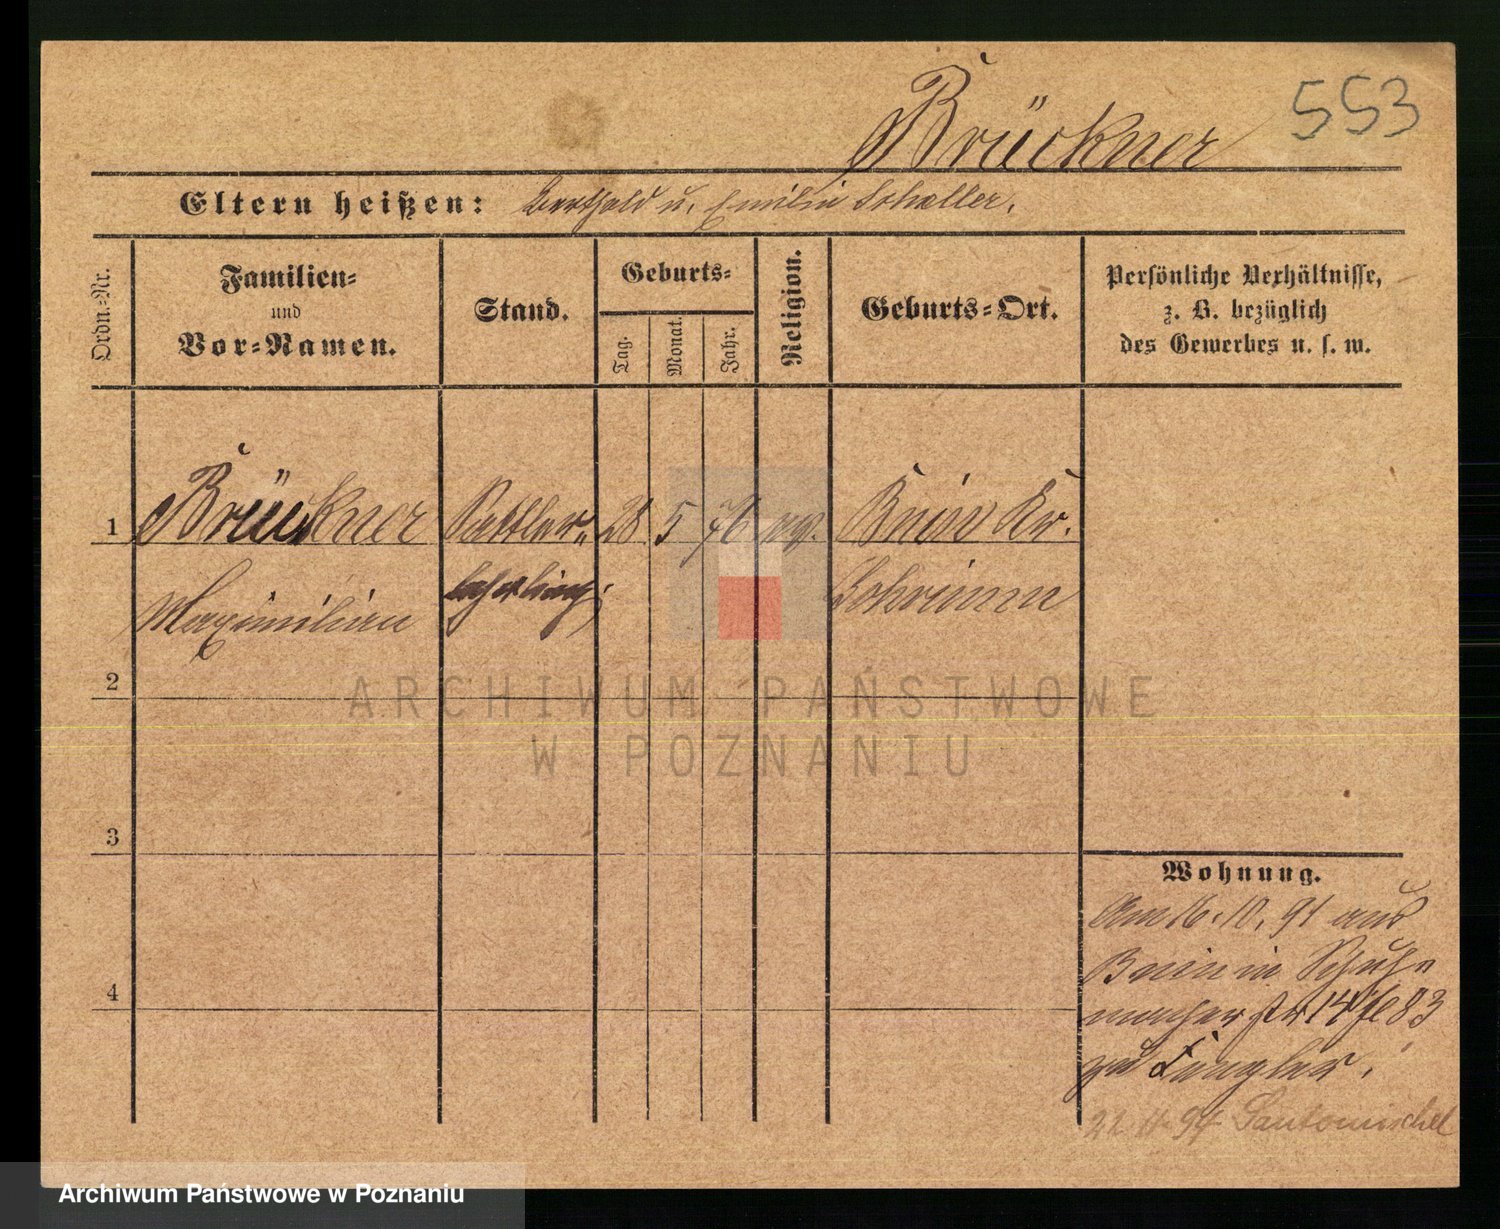 Brückner 553
Eltern heißen: Berthold u. Emilie Schaller.
Ordn.-Nr.
Familien-
und
Vor-Namen.
Stand.
Geburts-
Tag.
Monat.
Jahr.
Religion.
Geburts-Ort.
Persönliche Verhältnisse,
z. B. bezüglich
des Gewerbes u. s. w.
1 Brückner Sattler 28 5 76 Bnin Kr.
Maximilian lehrling Schrimm
2
3
4
Wohnung.
Am 16. 10. 91 aus
Bnin in Schuh
macher str 14
zu
94 Santomischel
ARCHIWUM PAŃSTWOWE
W POZNANIU
Archiwum Państwowe w Poznaniu